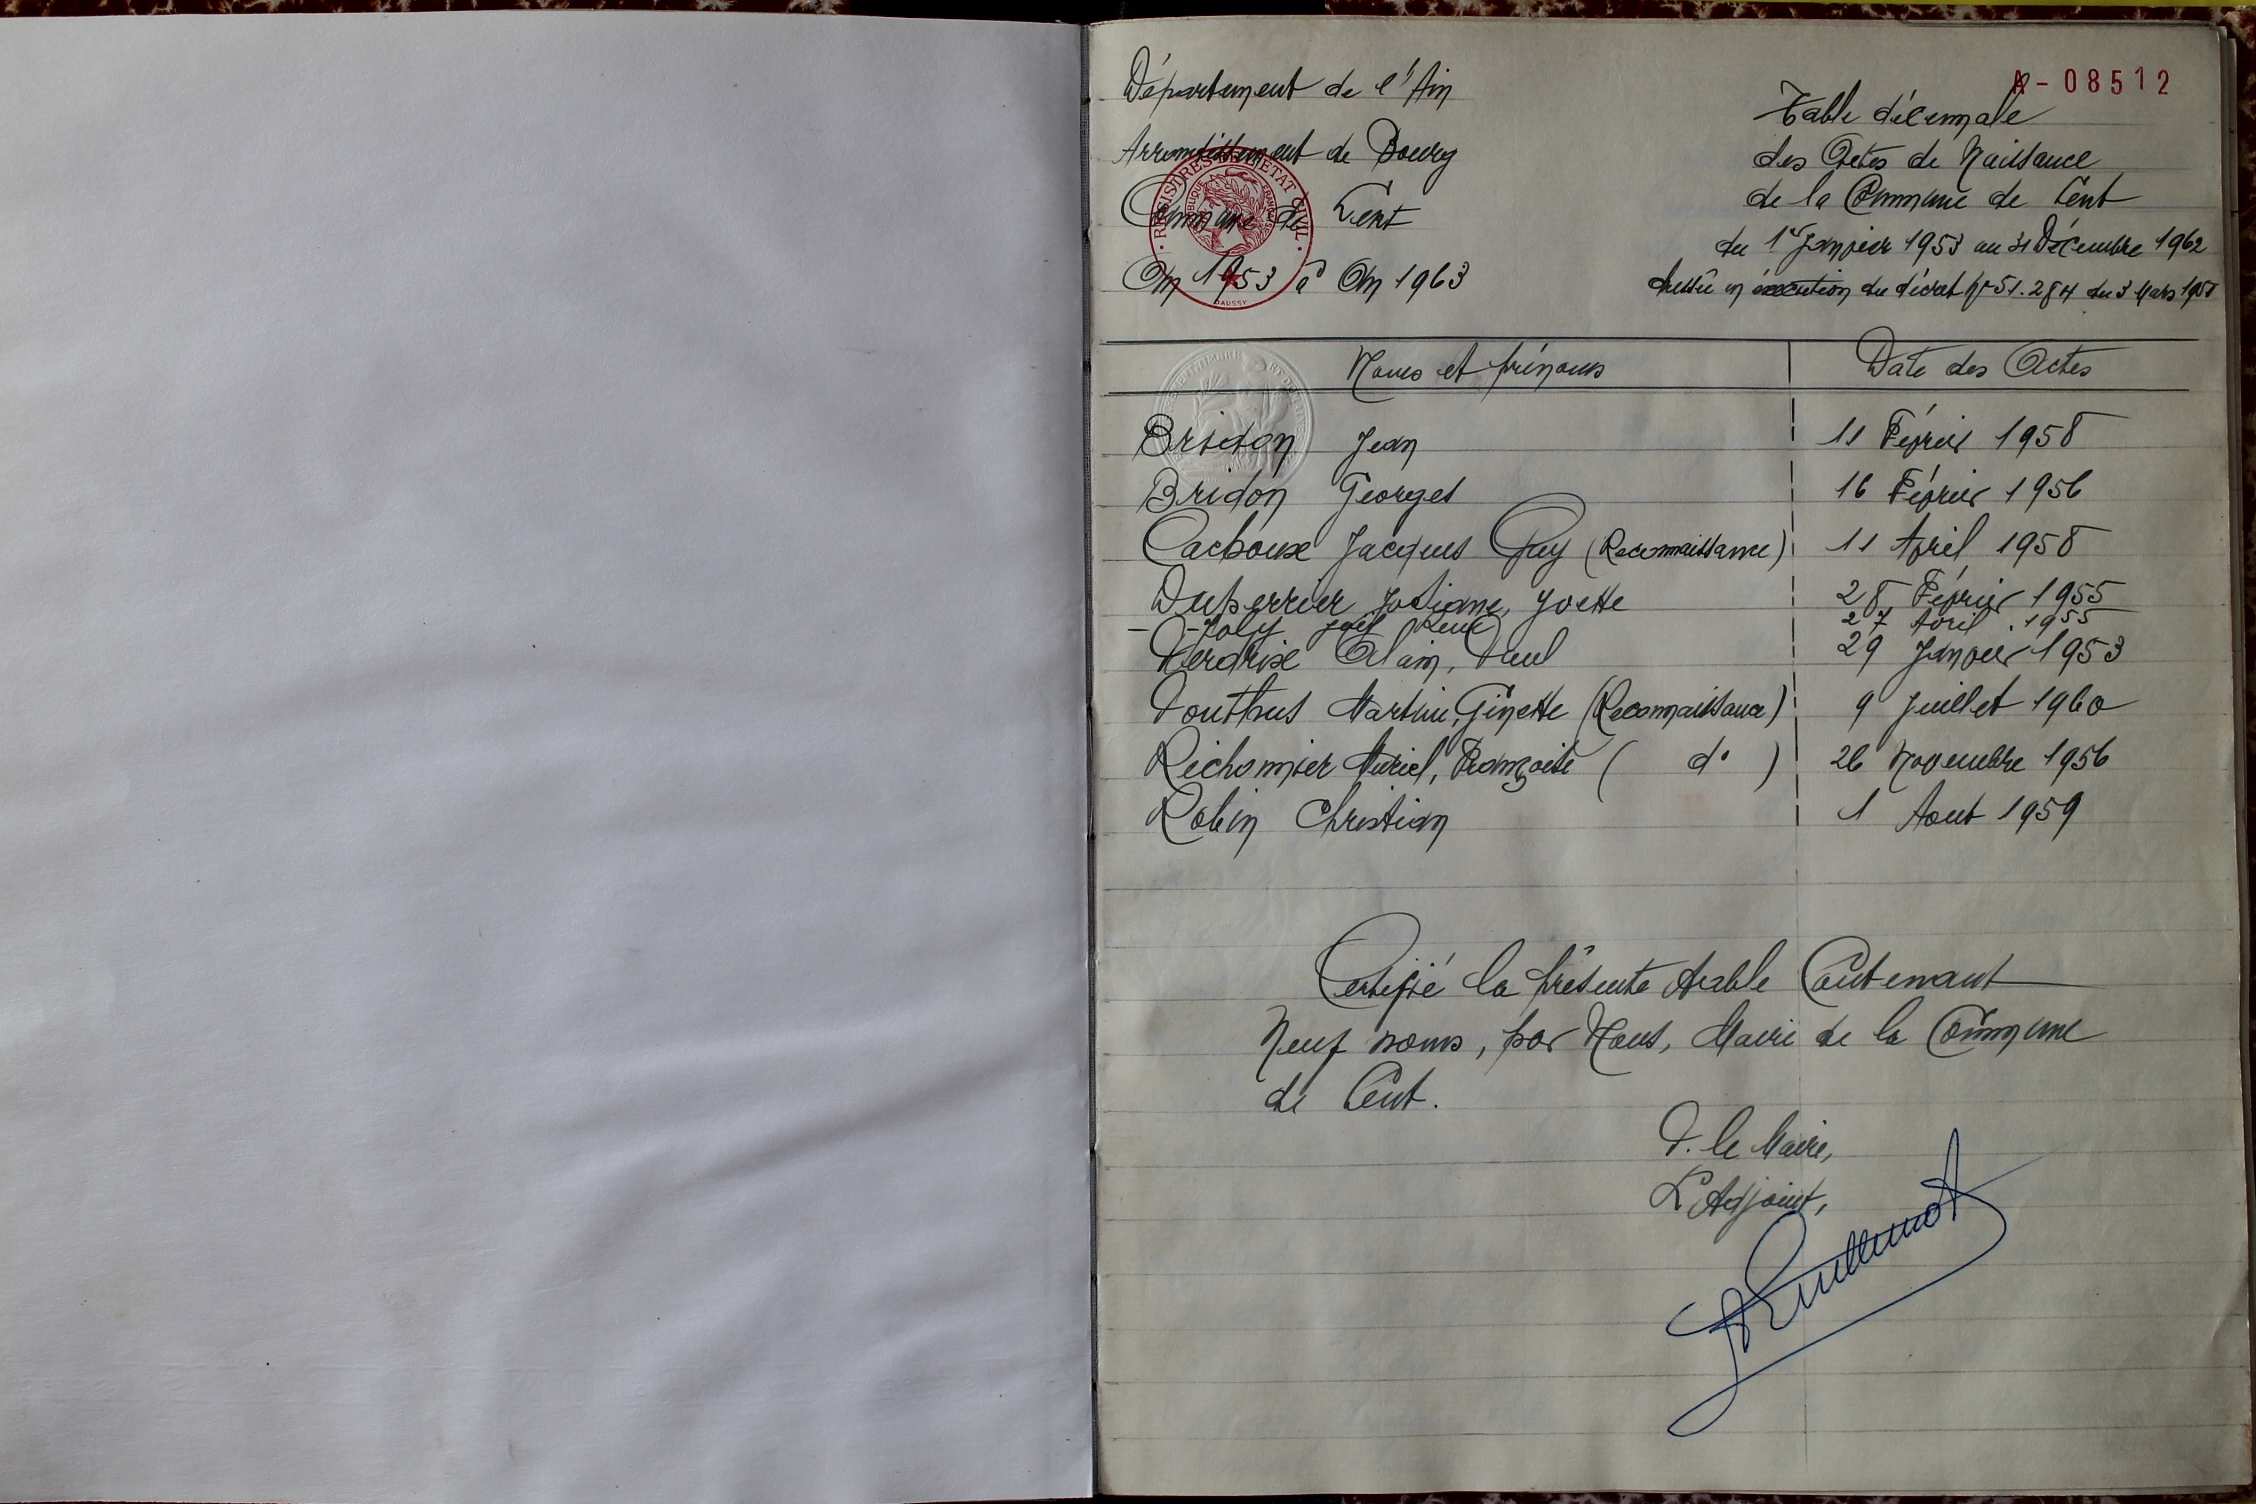 Département de l'Ain
Arrondissement de Bourg
Commune de Lent
An 1953 à An 1963
REGISTRES DE L'ETAT CIVIL
DAUSSY
A-08512
Table décennale
des Actes de Naissance
de la Commune de Lent
du 1er Janvier 1953 au 31 Décembre 1962
dressée en exécution du décret No 51.284 du 3 Mars 1951
Noms et prénoms Date des Actes
Bridon Jean 11 Février 1958
Bridon Georges 16 Février 1956
Cachoux Jacques Guy (Reconnaissance) 11 Avril 1958
Duperrier Josiane, Yvette 28 Février 1955
- Joly Joël René 27 Avril 1955
Perdrix Alain, Paul 29 Janvier 1953
Pouthus Martine, Ginette (Reconnaissance) 9 Juillet 1960
Richonnier Muriel, Françoise ( do ) 26 Novembre 1956
Robin Christian 1 Aout 1959
Certifié la présente table Contenant
Neuf noms, par Nous, Maire de la Commune
de Lent.
P. le Maire,
L'Adjoint,